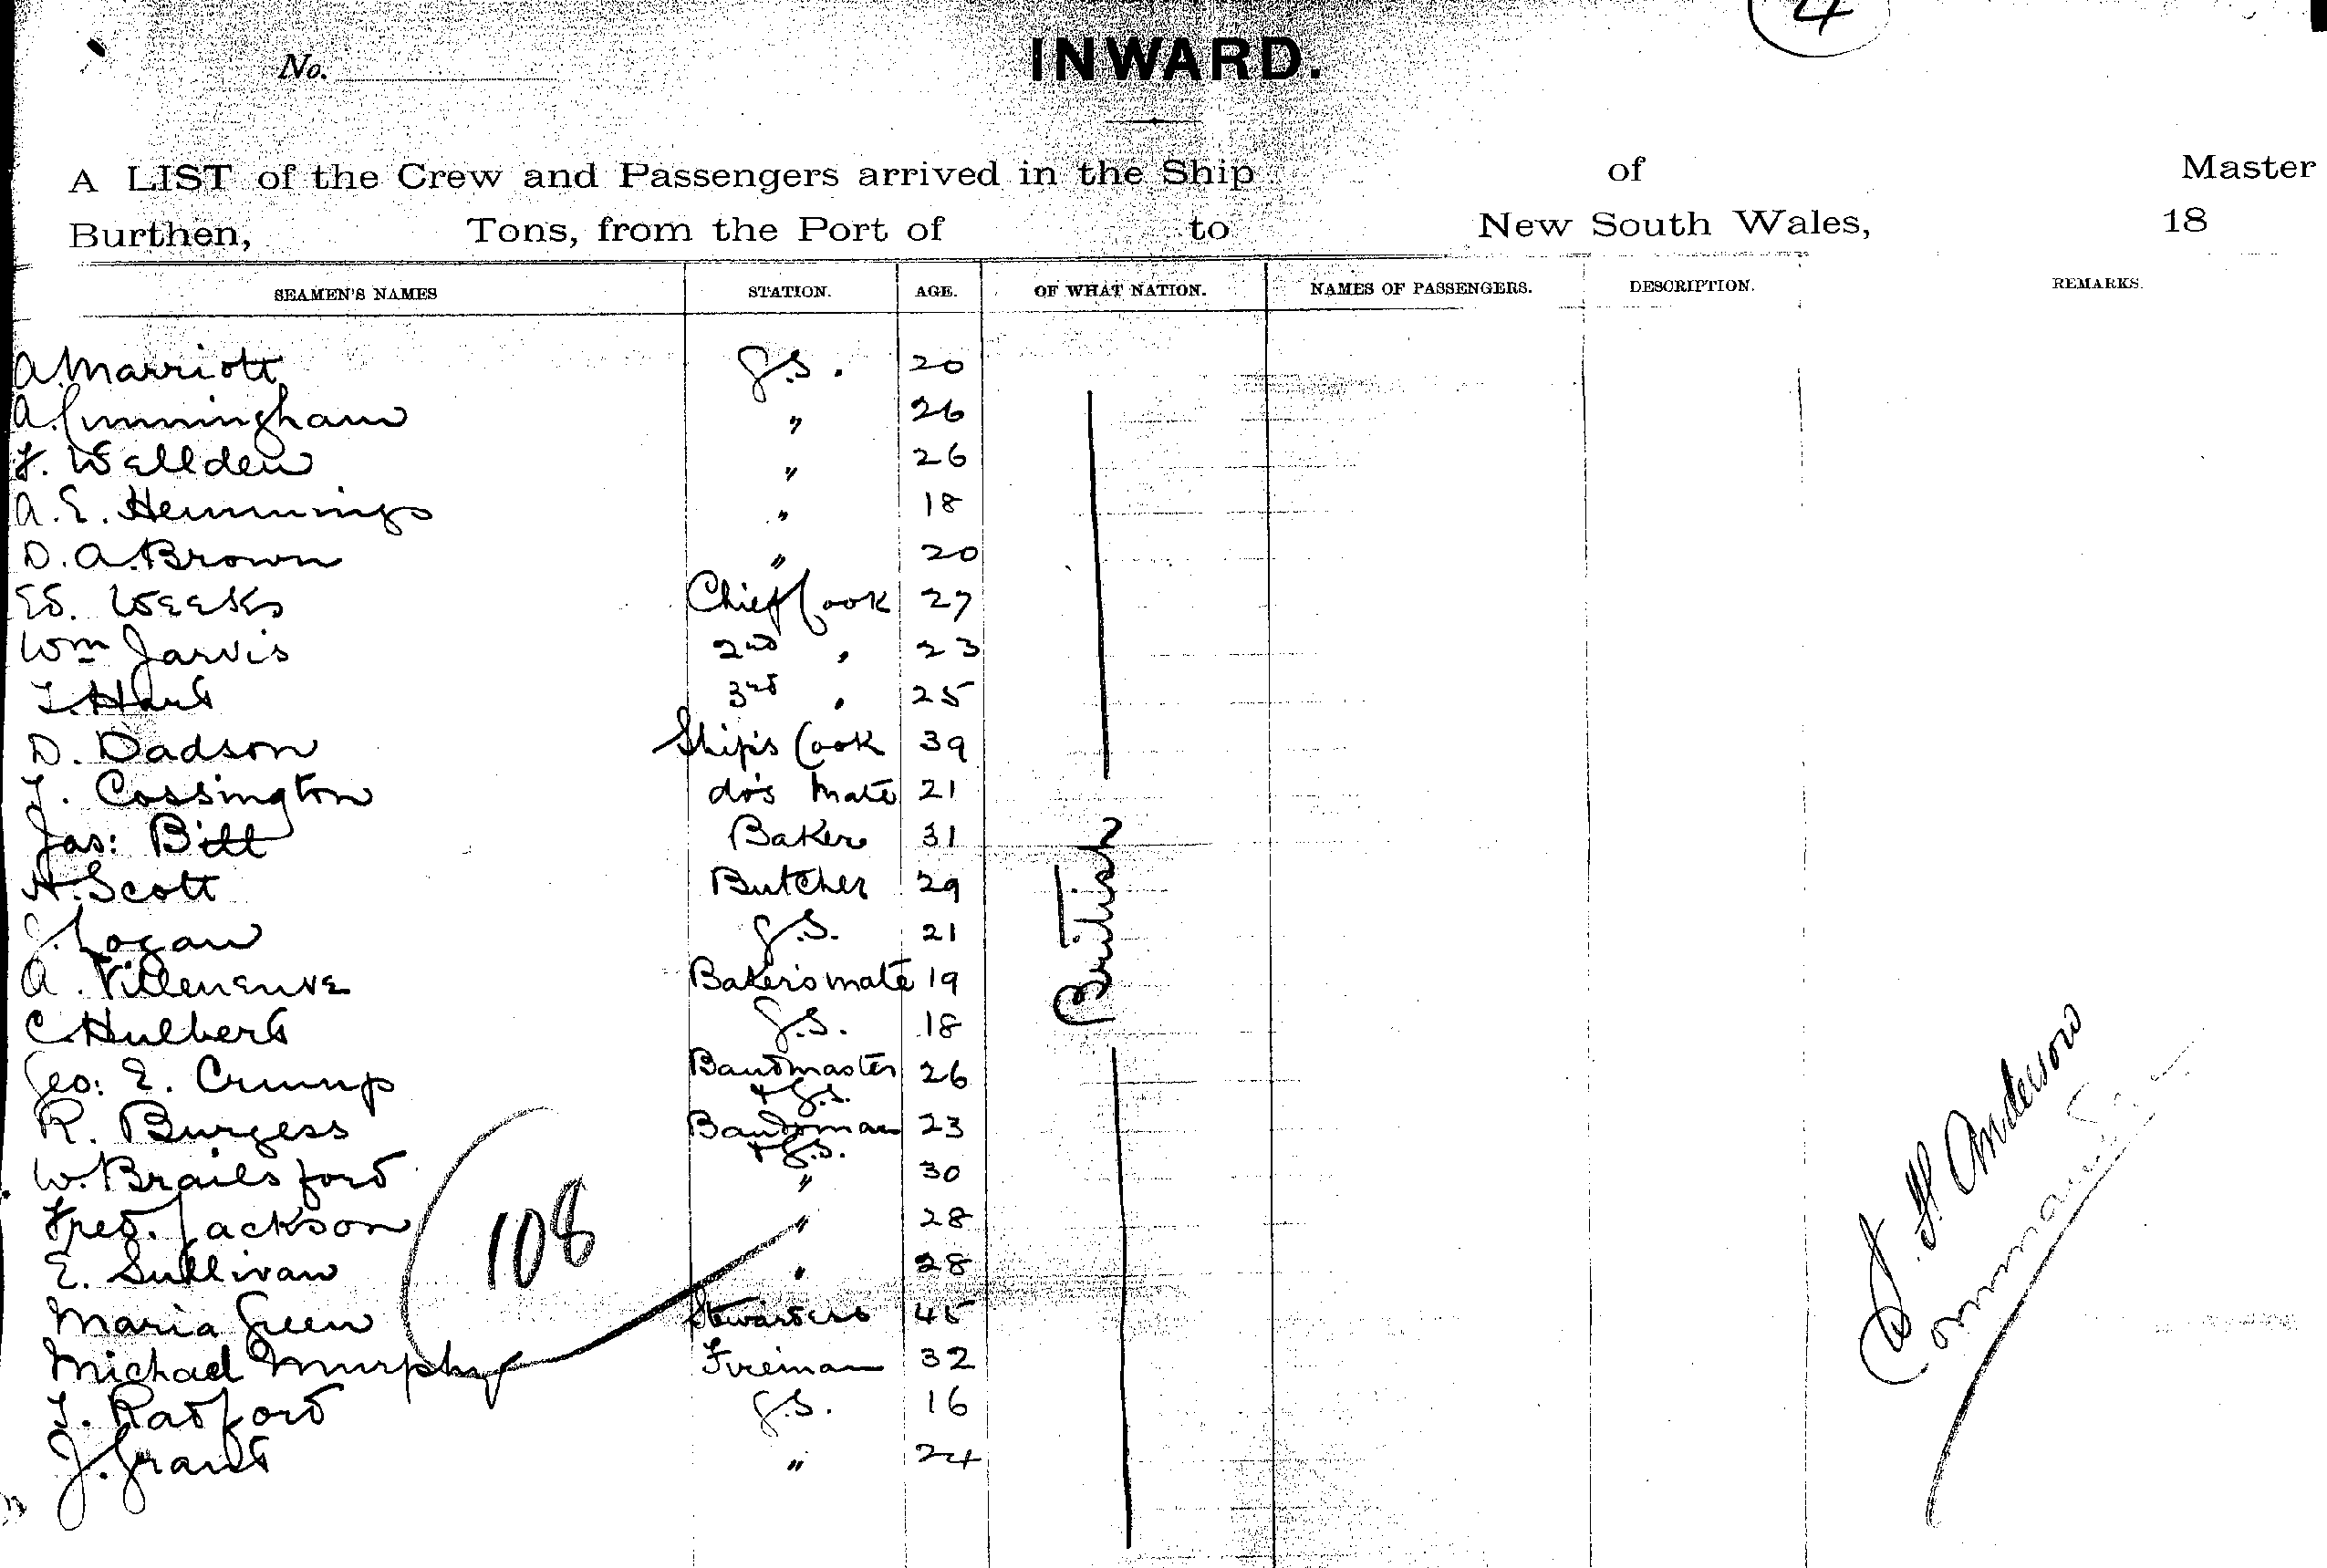 4
No.
INWARD.
A LIST of the Crew and Passengers arrived in the Ship of Master
Burthen, Tons, from the Port of to New South Wales, 18
SEAMEN'S NAMES STATION. AGE. OF WHAT NATION. NAMES OF PASSENGERS. DESCRIPTION. REMARKS.
A. Marriott G.S. 20
A. Cunningham " 26
F. Wellden " 26
A. E. Hemmings " 18
D. A. Brown " 20
Ed. Weeks Chief Cook 27
Wm Jarvis 2nd " 23
T. Hart 3rd " 25
D. Dadson Ship's Cook 39
T. Cossington do's Mate 21
Jas: Bitt Baker 31
H. Scott Butcher 29
J. Logan G.S. 21
A. Villeneuve Baker's mate 19
C. Hulbert G.S. 18
Geo: E. Crump Bandmaster 26
+ G.S.
R. Burgess Bandsman 23
+ G.S.
W. Brailsford " 30
Fred. Jackson " 28
E. Sullivan " 28
Maria Green Stewardess 45
Michael Murphy Fireman 32
T. Radford G.S. 16
J. Grant " 24
British
108
H. Anderson
Commander